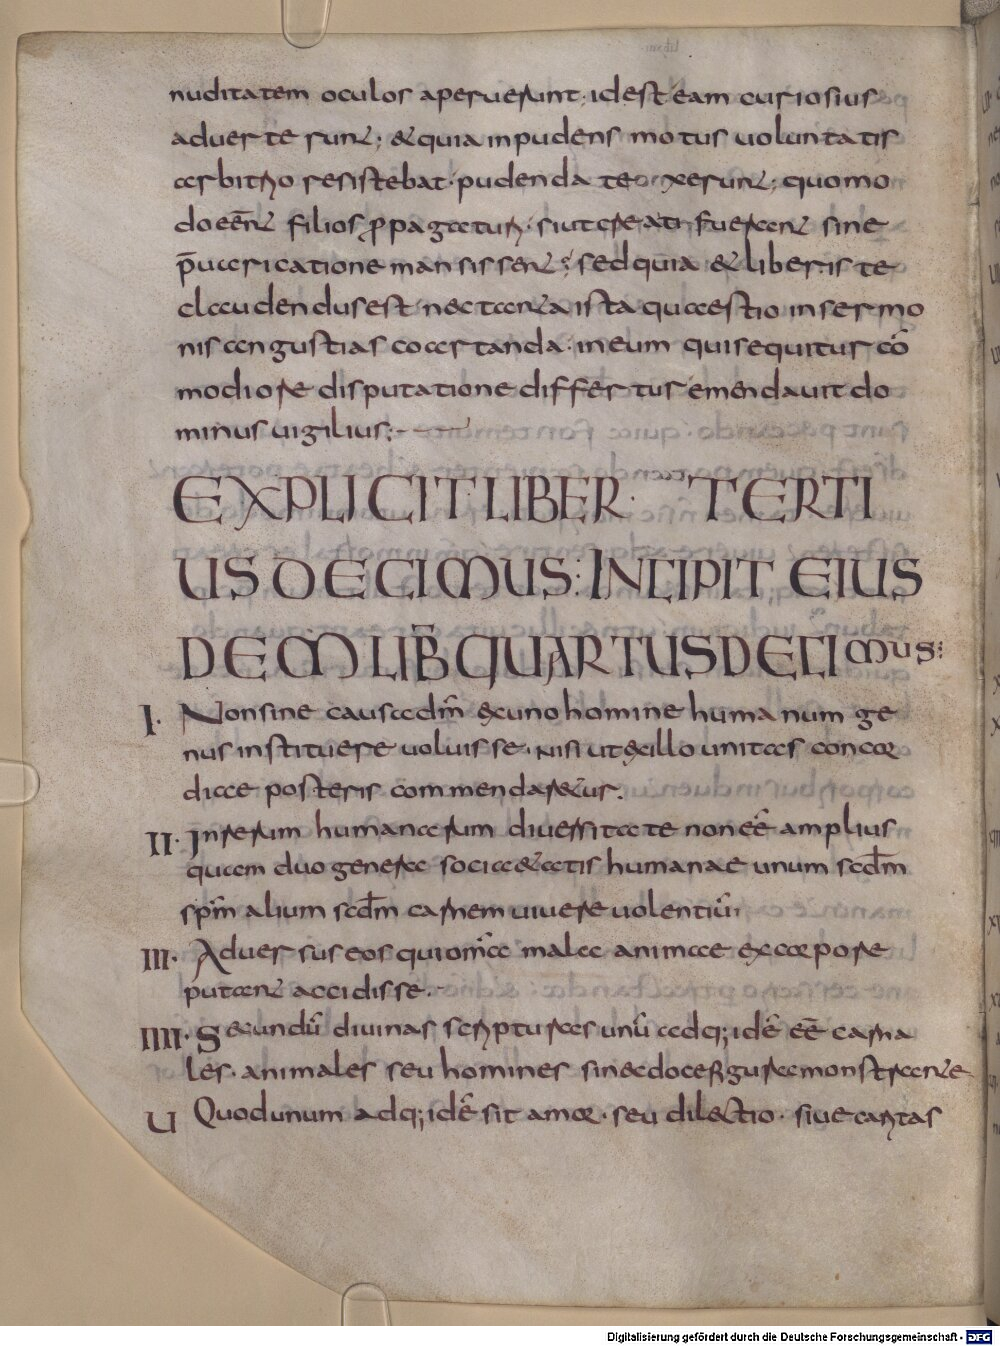 nuditatem oculos aperuerunt; id est eam curiosius
aduerterunt; & quia inpudens motus uoluntatis
arbitrio resistebat· pudenda texerunt; quomo
do eēnt filios ꝓpagaturi· siut creati fuerant sine
p̄uaricatione mansissent; sed quia & liber iste
claudendus est· nec tanta ista quaestio in sermo
nis angustias coartanda· in eum qui sequitur cō
modiore disputatione differtur emendauit do
minus uigilius;
EXPLICIT· LIBER· TERTI
US DECIMUS: INCIPIT EIUS
DEM LIB̄ QUARTUS DECIMUS:
I· Non sine causa dm̄ ex uno homine humanum ge
nus instituere uoluisse· nisi ut ex illo unitas concor
diae posteris commendaretur.
II· In rerum humanarum diuersitate non eē amplius
quam duo genera societatis humanae unum scdm̄
spm̄ alium scdm̄ carnem uiuere uolentiū·
III· Aduersus eos qui om̄a mala animae ex corpore
putant accidisse·
IIII· Secundū diuinas scripturas unū adq; idē eē carna
les· animales seu homines sine doctrina monstrantes
U Quod unum adq; idē sit amor· seu dilectio· siue caritas
Digitalisierung gefördert durch die Deutsche Forschungsgemeinschaft - DFG